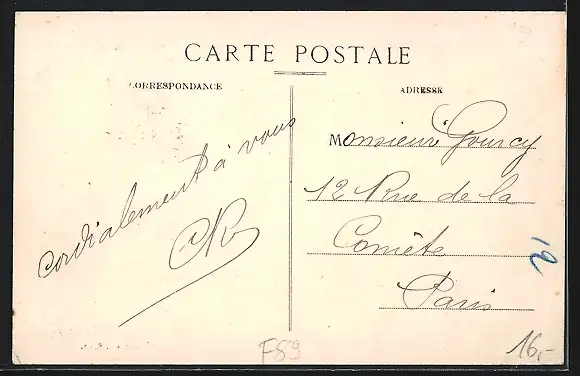 CARTE POSTALE
CORRESPONDANCE
ADRESSE
cordialement à vous
CR
Monsieur Gourcy
12 Rue de la
Comète
Paris
19
F89
16,-